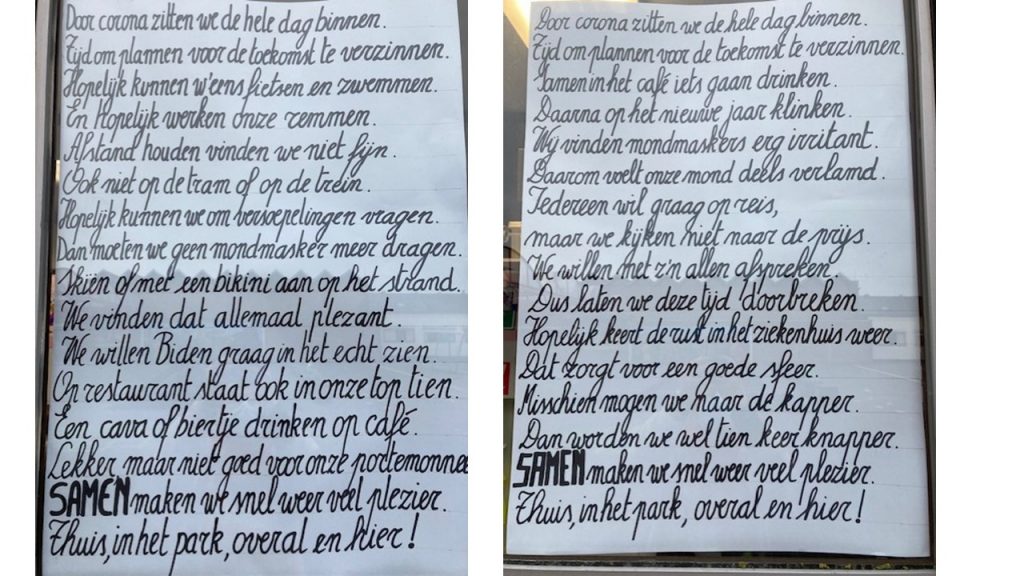 Door corona zitten we de hele dag binnen.
Tijd om plannen voor de toekomst te verzinnen.
Hopelijk kunnen w'eens fietsen en zwemmen.
En hopelijk werken onze remmen.
Afstand houden vinden we niet fijn.
Ook niet op de tram of op de trein.
Hopelijk kunnen we om versoepelingen vragen.
Dan moeten we geen mondmasker meer dragen.
Skiën of met een bikini aan op het strand.
We vinden dat allemaal plezant.
We willen Biden graag in het echt zien.
Op restaurant staat ook in onze top tien.
Een cava of biertje drinken op café.
Lekker maar niet goed voor onze portemonnee
SAMEN maken we snel weer veel plezier.
Thuis, in het park, overal en hier!
Door corona zitten we de hele dag binnen.
Tijd om plannen voor de toekomst te verzinnen.
Samen in het café iets gaan drinken.
Daarna op het nieuwe jaar klinken.
Wij vinden mondmaskers erg irritant.
Daarom voelt onze mond deels verlamd.
Iedereen wil graag op reis,
maar we kijken niet naar de prijs.
We willen met z'n allen afspreken.
Dus laten we deze tijd doorbreken.
Hopelijk keert de rust in het ziekenhuis weer.
Dat zorgt voor een goede sfeer.
Misschien mogen we naar de kapper.
Dan worden we wel tien keer knapper.
SAMEN maken we snel weer veel plezier.
Thuis, in het park, overal en hier!